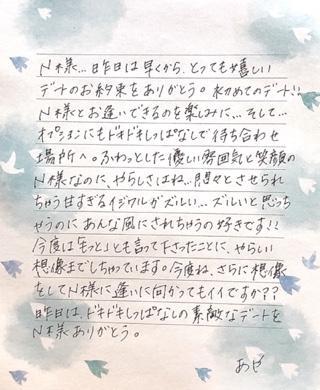 N様…昨日は早くから、とっても嬉しい
デートのお約束をありがとう。初めてのデート!!
N様とお逢いできるのを楽しみに、…そして…
オプションにもドキドキしっぱなしで待ち合わせ
場所へ。ふわっとした優しい雰囲気と笑顔の
N様なのに、やらしさはね…悶々とさせられ
ちゃう甘すぎるイジワルがズルい…ズルいと思っち
ゃうのにあんな風にされちゃうの好きです!!
今度はもっと」とも言って下さったことに、やらしい
想像までしちゃっています。今度ね、さらに想像
をしてN様に逢いに向かってもイイですか??
昨日は、ドキドキしっぱなしの素敵なデートを
N様ありがとう。
あや